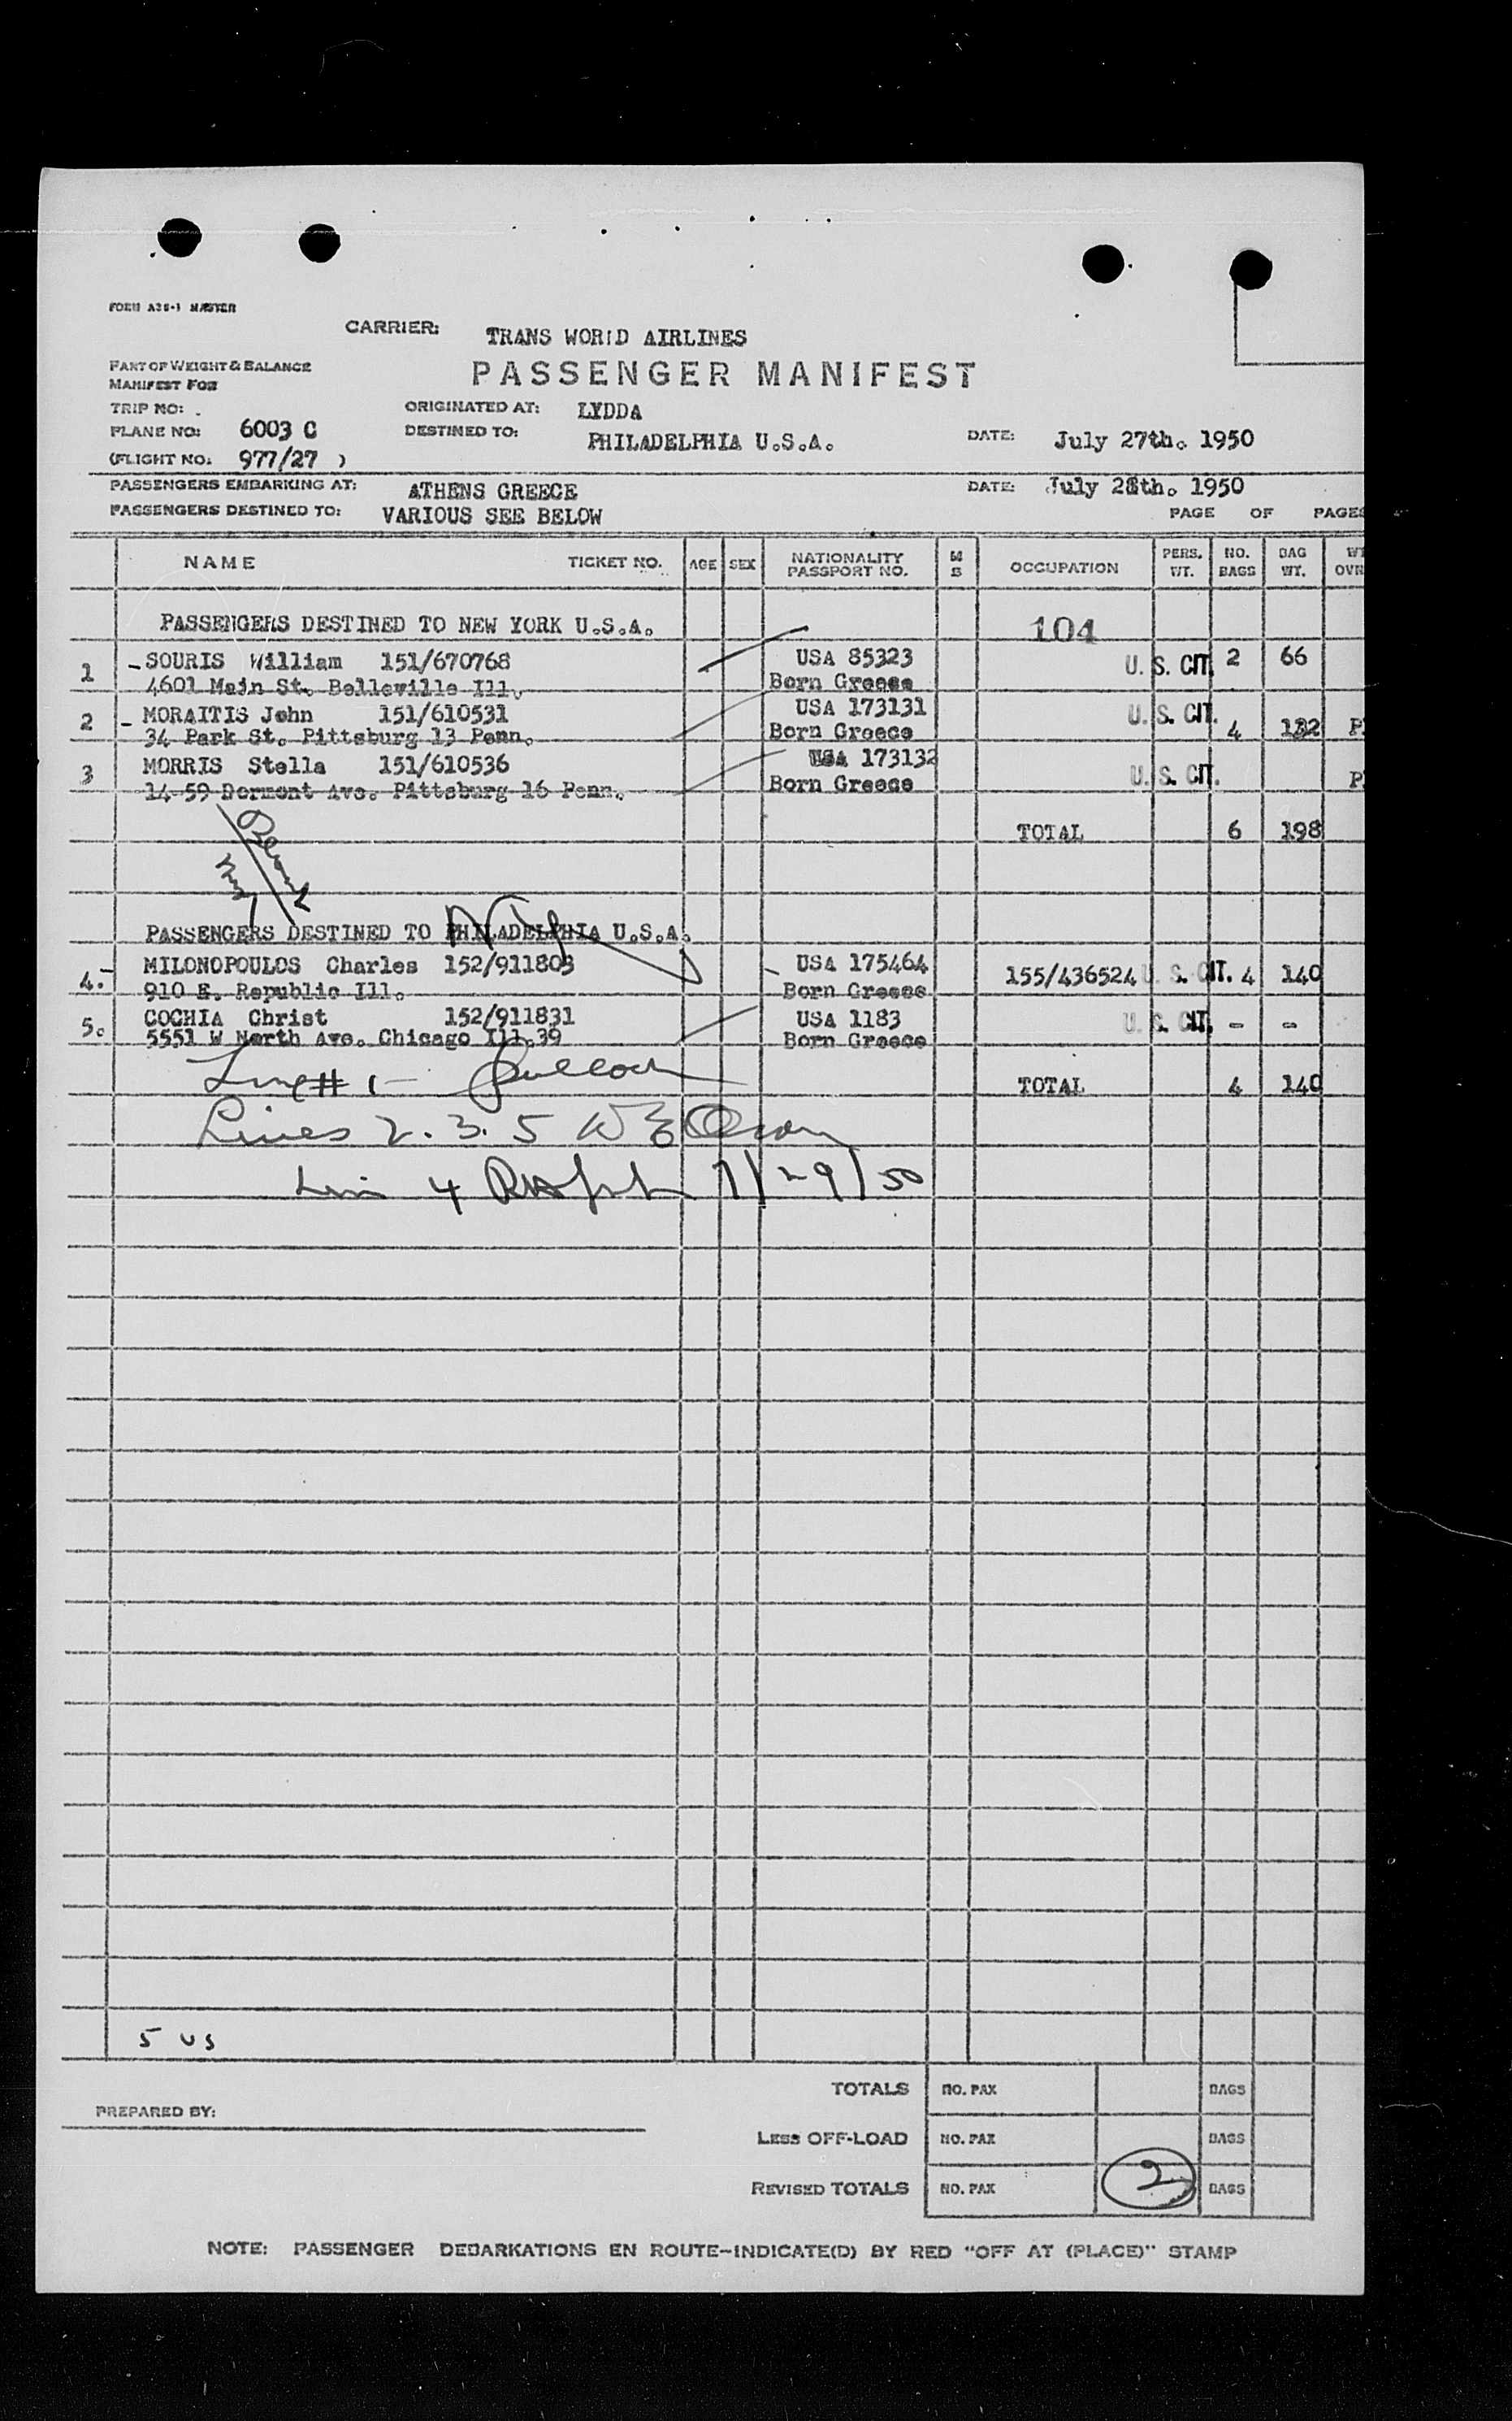 FORM A36-1 MASTER
CARRIER: TRANS WORLD AIRLINES
PART OF WEIGHT & BALANCE
MANIFEST FOR
PASSENGER MANIFEST
TRIP NO:
ORIGINATED AT: LYDDA
PLANE NO: 6003 C
DESTINED TO: PHILADELPHIA U.S.A.
DATE: July 27th. 1950
(FLIGHT NO: 977/27 )
PASSENGERS EMBARKING AT: ATHENS GREECE
DATE: July 28th. 1950
PASSENGERS DESTINED TO: VARIOUS SEE BELOW
PAGE OF PAGES
NAME TICKET NO. AGE SEX NATIONALITY PASSPORT NO. M S OCCUPATION PERS. WT. NO. BAGS BAG WT. WT OVR
PASSENGERS DESTINED TO NEW YORK U.S.A. 104
1 - SOURIS William 151/670768 USA 85323 U. S. CIT. 2 66
4601 Main St. Belleville Ill. Born Greece
2 - MORAITIS John 151/610531 USA 173131 U. S. CIT. 4 132 P
34 Park St. Pittsburg 13 Penn. Born Greece
3 MORRIS Stella 151/610536 USA 173132 U. S. CIT. P
14-59 Dormont Ave. Pittsburg 16 Penn. Born Greece
TOTAL 6 198
PASSENGERS DESTINED TO PHILADELPHIA U.S.A.
4.- MILONOPOULOS Charles 152/911803 USA 175464 155/436524 U. S. CIT. 4 140
910 E. Republic Ill. Born Greece
5. COCHIA Christ 152/911831 USA 1183 U. S. CIT. - -
5551 W North Ave. Chicago Ill.39 Born Greece
Line # 1 -
TOTAL 4 140
Lines 2. 3. 5 W E Olson
4 7/29/50
5 US
TOTALS NO. PAX BAGS
PREPARED BY:
LESS OFF-LOAD NO. PAX BAGS
REVISED TOTALS NO. PAX 2 BAGS
NOTE: PASSENGER DEBARKATIONS EN ROUTE-INDICATE(D) BY RED "OFF AT (PLACE)" STAMP